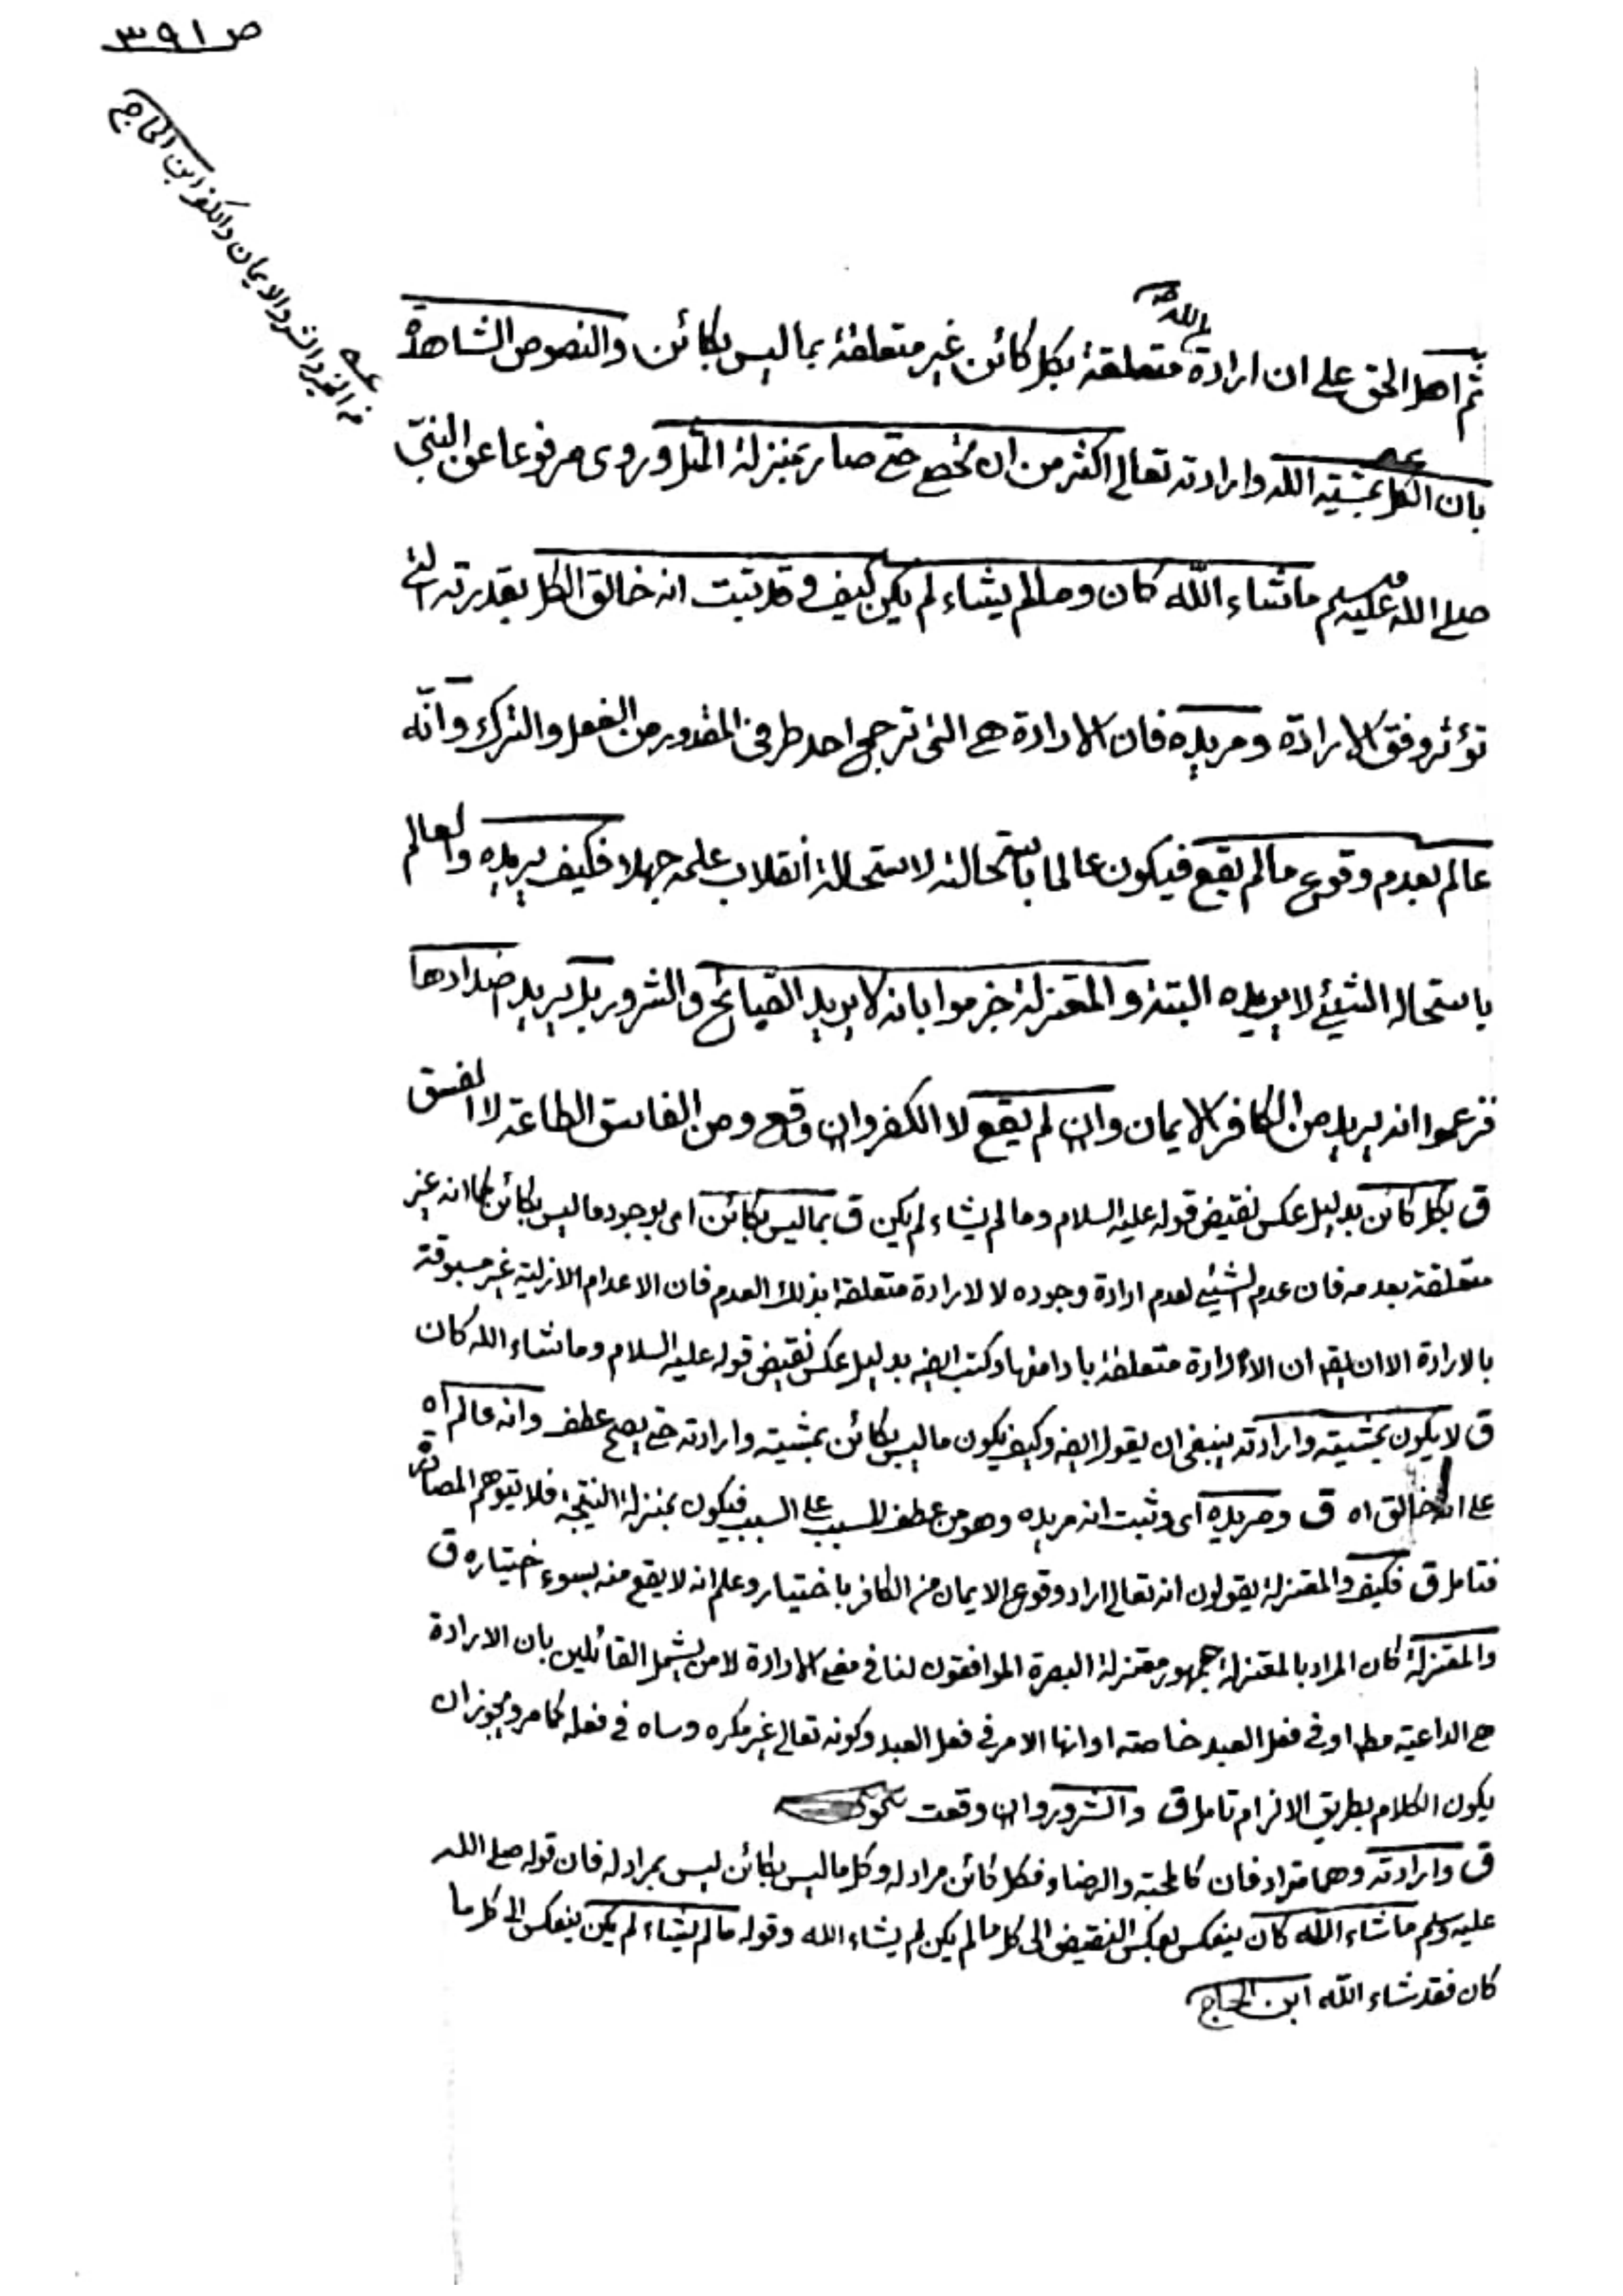 ص ٣٩١
من الخير والشر والايمان والكفر ابن الحاج
ثم اهل الحق على ان ارادة الله متعلقة بكل كائن غير متعلقة بما ليس بكائن والنصوص الشاهدة
بان الكل بمشيته الله وارادته تعالى اكثر من ان تحصى حتى صار بمنزلة المثل وروى مرفوعا عن النبي
صلى الله عليه وسلم ماشاء الله كان ومالم يشاء لم يكن كيف وقد ثبت انه خالق الكل بقدرته التي
تؤثر وفق الارادة ومريده فان الارادة هي التى ترجح احد طرفى المقدور من الفعل والترك وانه
عالم بعدم وقوع مالم يقع فيكون عالما باستحالته لاستحالة انقلاب علمه جهلا فكيف يريده والعالم
باستحالة الشيئ لا يريده البتة والمعتزلة جزموا بانه لا يريد القبائح والشرور بل يريد اضدادها
فزعموا انه يريد من الكافر الايمان وان لم يقع لا الكفر وان وقع ومن الفاسق الطاعة لا الفسق
ق بكل كائن بدليل عكس نقيض قوله عليه السلام وما لم يشاء لم يكن ق بما ليس بكائن اى بوجود ما ليس بكائن كما انه غير
متعلقة بعدمه فان عدم الشيئ لعدم ارادة وجوده لا لارادة متعلقة بذلك العدم فان الاعدام الازلية غير مسبوقة
بالارادة الا ان يقم ان الارادة متعلقة بادامتها وكتب ايضه بدليل عكس نقيض قوله عليه السلام وما شاء الله كان
ق لا يكون بمشيته وارادته ينبغى ان يقول ايضه وكيف يكون ما ليس بكائن بمشيته وارادته حتى يصح عطف وانه عالم اه
على انه خالق اه ق ومريده اى وثبت انه مريده وهو من عطف المسبب على السبب فيكون بمنزلة النتيجة فلا يتوهم المصادرة
فتامل ق فكيف والمعتزلة يقولون انه تعالى اراد وقوع الايمان من الكافر باختيار وعلم انه لا يقع منه بسوء اختياره ق
والمعتزلة كان المراد بالمعتزلة جمهور معتزلة البصرة الموافقون لنا فى معنى الارادة لا من يشمل القائلين بان الارادة
هي الداعية مطم او فى فعل العبد خاصته او انها الامر فى فعل العبد وكونه تعالى غير مكره وساه فى فعله كما مر ويجوز ان
يكون الكلام بطريق الالزام تامل ق والشرور وان وقعت
ق وارادته وهما مترادفان كالمحبة والرضاء فكل كائن مراد له وكل ما ليس بكائن ليس بمراد له فان قوله صلى الله
عليه وسلم ماشاء الله كان ينعكس بعكس النقيض الى كل مالم يكن لم يشاء الله وقوله مالم يشاء لم يكن ينعكس الى كل ما
كان فقد شاء الله ابن الحاج